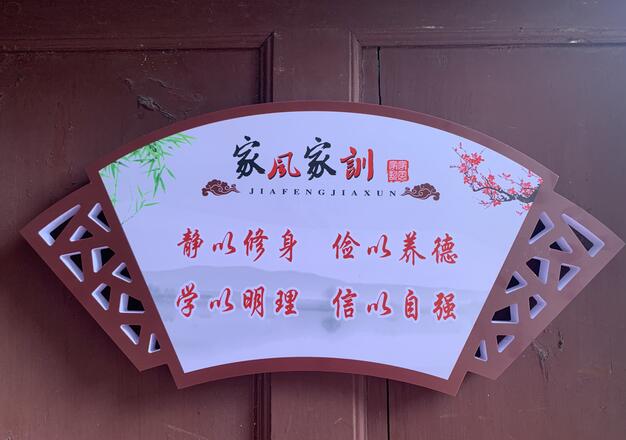 家风家訓
JIAFENGJIAXUN
静以修身 俭以养德
学以明理 信以自强